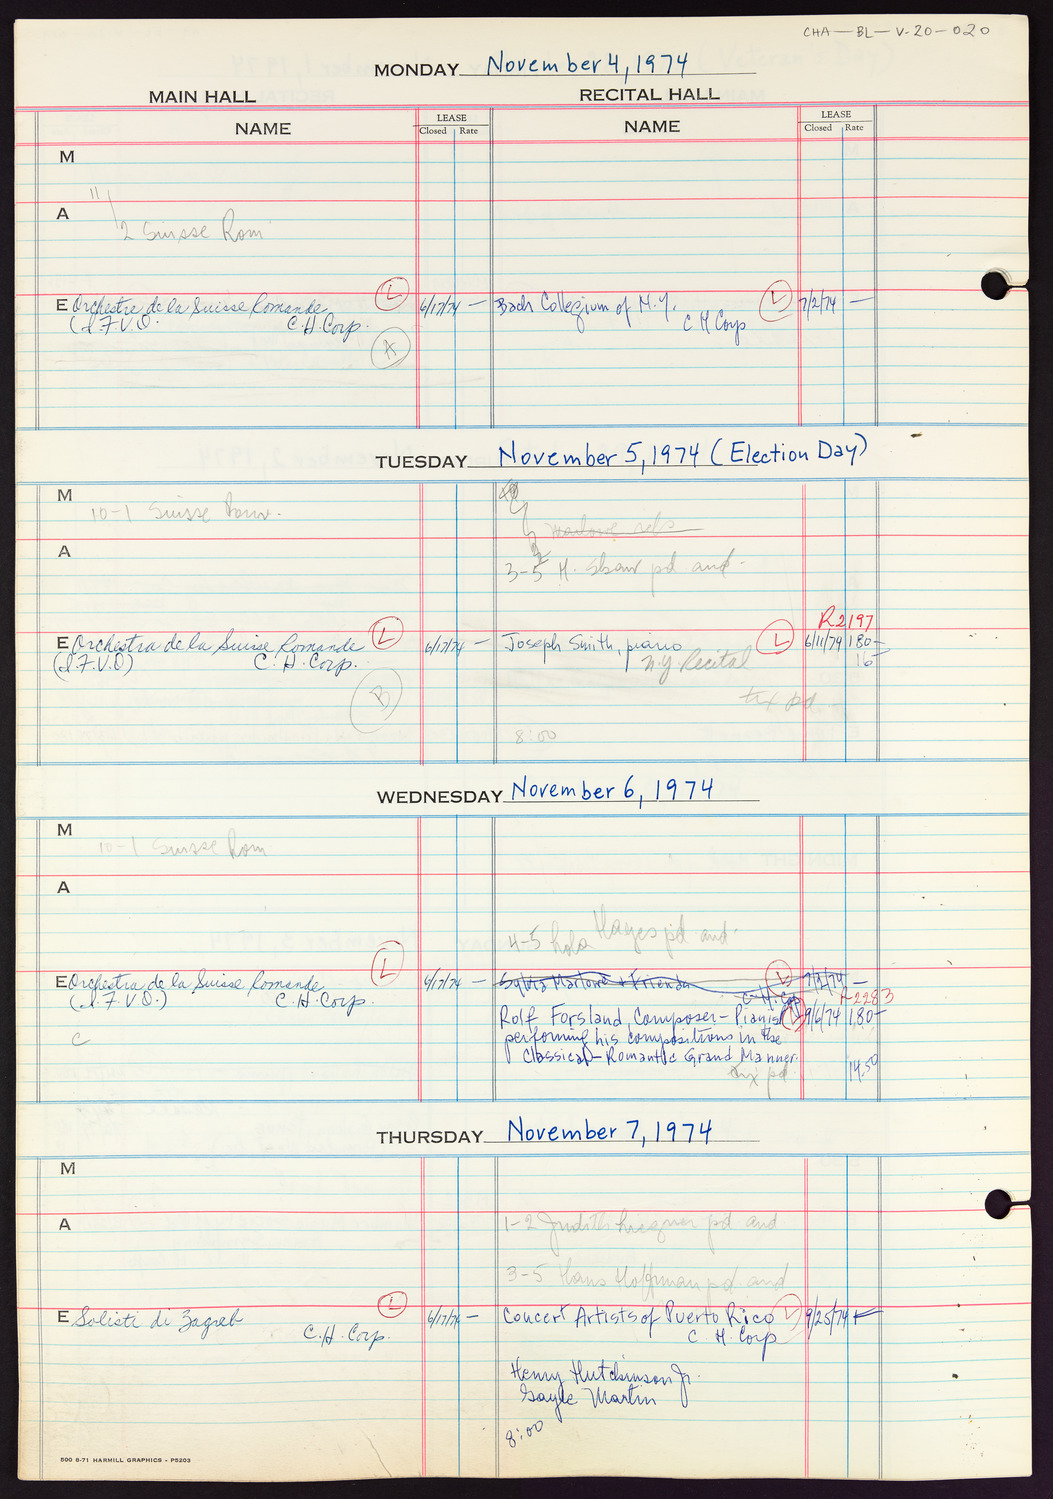 CHA—BL—V-20-020
MONDAY November 4, 1974
MAIN HALL
RECITAL HALL
NAME
LEASE
Closed Rate
NAME
LEASE
Closed Rate
M
11
A
2 Suisse Rom
E Orchestre de la Suisse Romande L 6/17/74 —
(I.F.V.O. C.H.Corp.
A
Bach Collegium of N.Y. L 7/2/74 —
C H Corp
TUESDAY November 5, 1974 (Election Day)
M
10-1 Suisse Rom.
A
Marlowe
3-5 H. Shaw pd and.
R2197
E Orchestra de la Suisse Romande L 6/17/74 —
(I.F.V.O) C.H.Corp.
B
Joseph Smith, piano L 6/11/74 180—
N.Y. Recital 16
tx pd.
8:00
WEDNESDAY November 6, 1974
M
10-1 Suisse Rom
A
4-5 Hayes pd and.
E Orchestra de la Suisse Romande L 6/17/74 —
(I.F.V.O.) C.H.Corp.
C
Sylvia Marlowe + Friends L 7/2/74 —
C.H.Corp R2283
Rolf Forsland, Composer-Pianist L 9/6/74 180—
performing his compositions in the
Classical-Romantic Grand Manner.
tx pd. 14.50
THURSDAY November 7, 1974
M
A
1-2 Judith pd and
3-5 Hans Hoffman pd and
E Solisti di Zagreb L 6/17/74 —
C.H.Corp.
Concert Artists of Puerto Rico L 9/25/74
C. H. Corp
Henry Hutchinson Jr.
Gayle Martin
8:00
500 6-71 HARMILL GRAPHICS - P5203